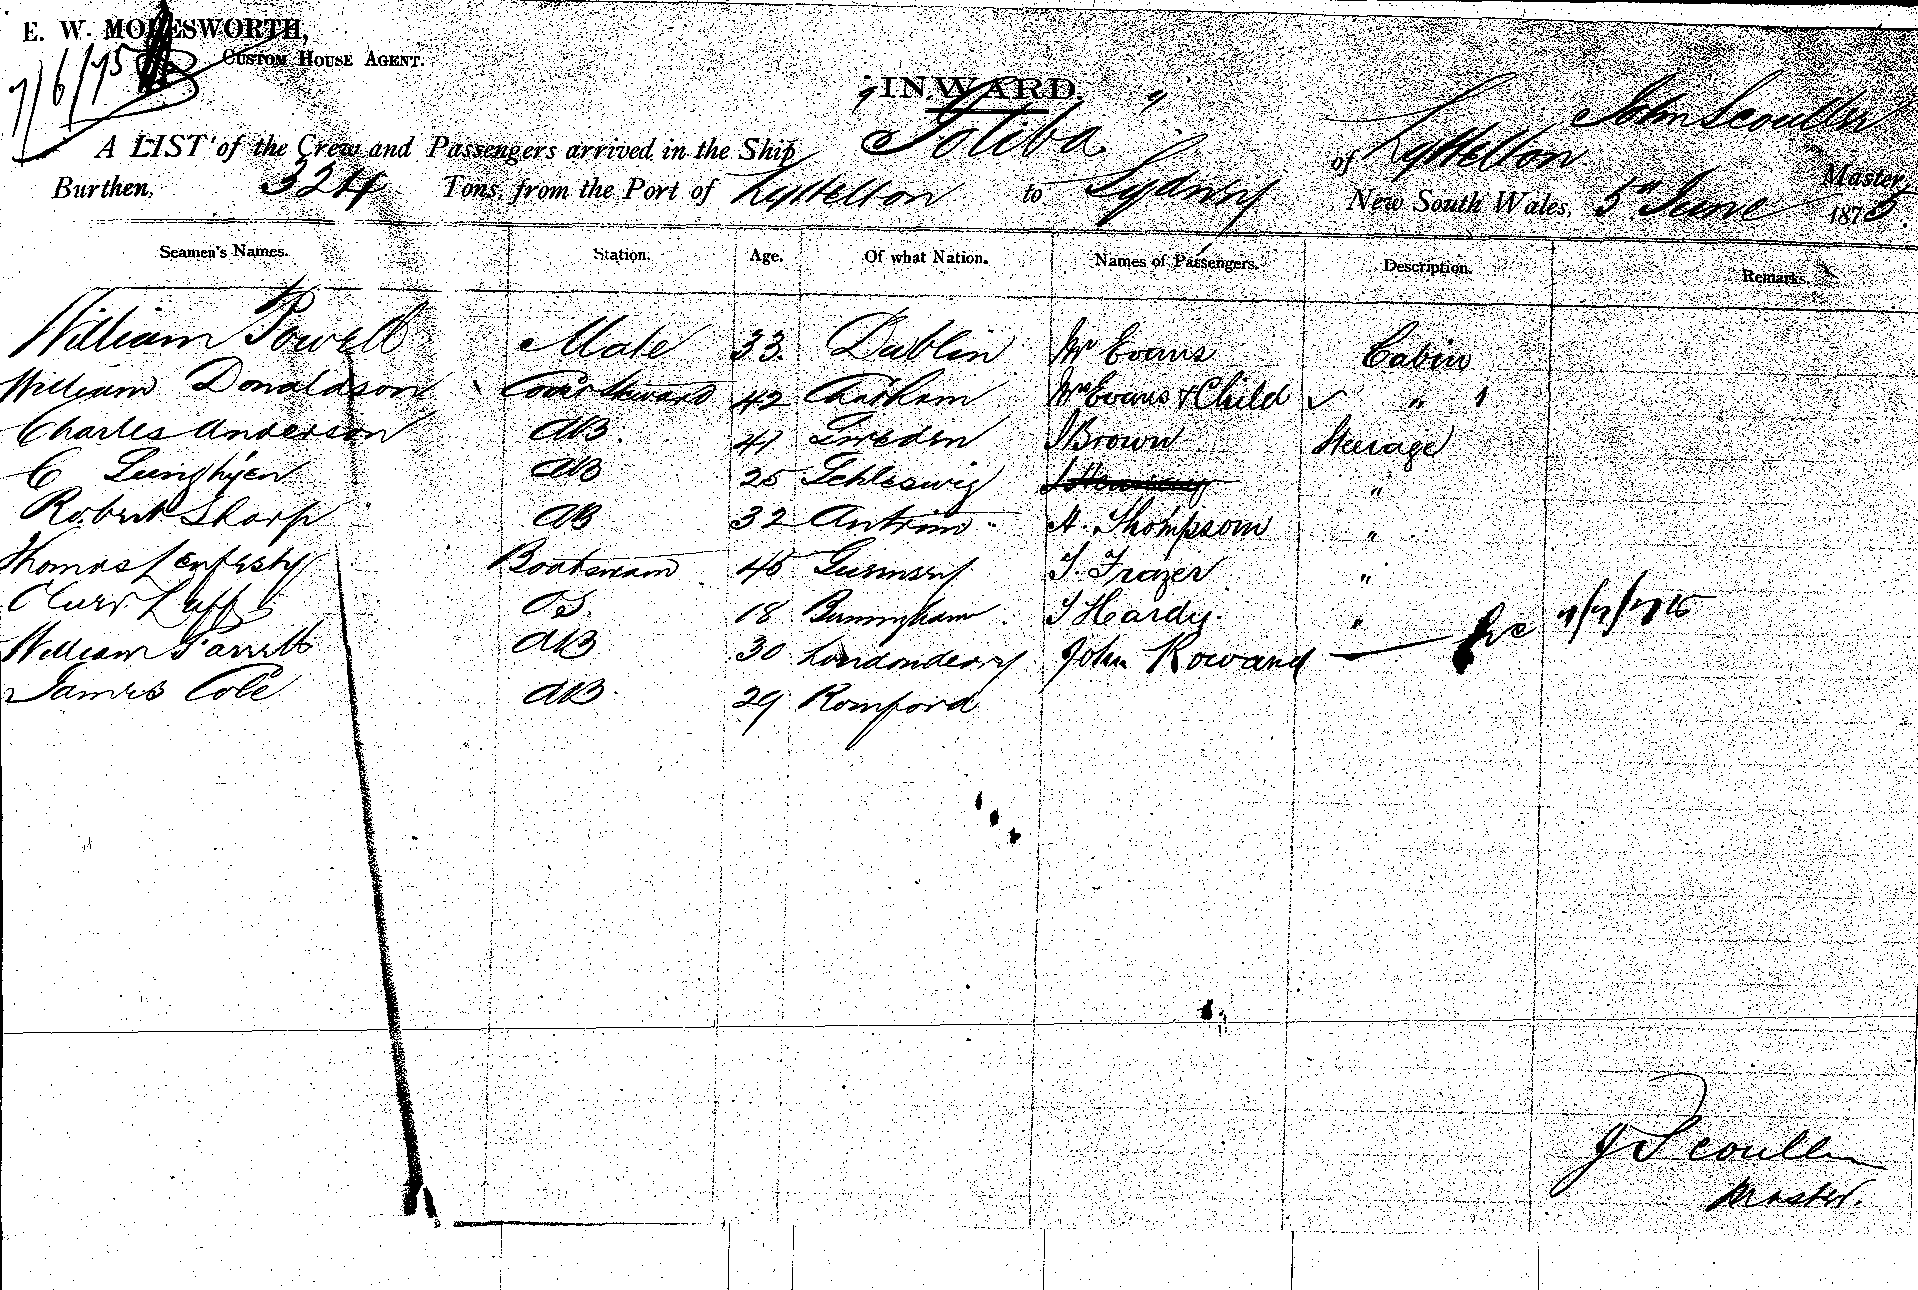 E. W. MOLESWORTH,
CUSTOM HOUSE AGENT.
7/6/75
INWARD.
A LIST of the Crew and Passengers arrived in the Ship "Toliba" of Lyttelton John Scoullar Master,
Burthen, 324 Tons, from the Port of Lyttelton to Sydney New South Wales, 5th June 1875
Seamen's Names. Station. Age. Of what Nation. Names of Passengers. Description. Remarks.
William Powell Mate 33. Dublin Mr Evans Cabin
William Donaldson Cook & Steward 42 Chatham Mrs Evans & Child " 1
Charles Anderson AB. 41 Sweden J Brown Steerage
C AB 25 Schleswig "
Robert Sharp AB 32 Antrim A. Thompson "
Thomas Boatswain 45 Guernsey T. Frazer "
Luff OS. 18 Birmingham T Hardy. "
William Parrett AB 30 Londonderry John Rowand
James Cole AB 29 Romford
J Scoullar
Master.